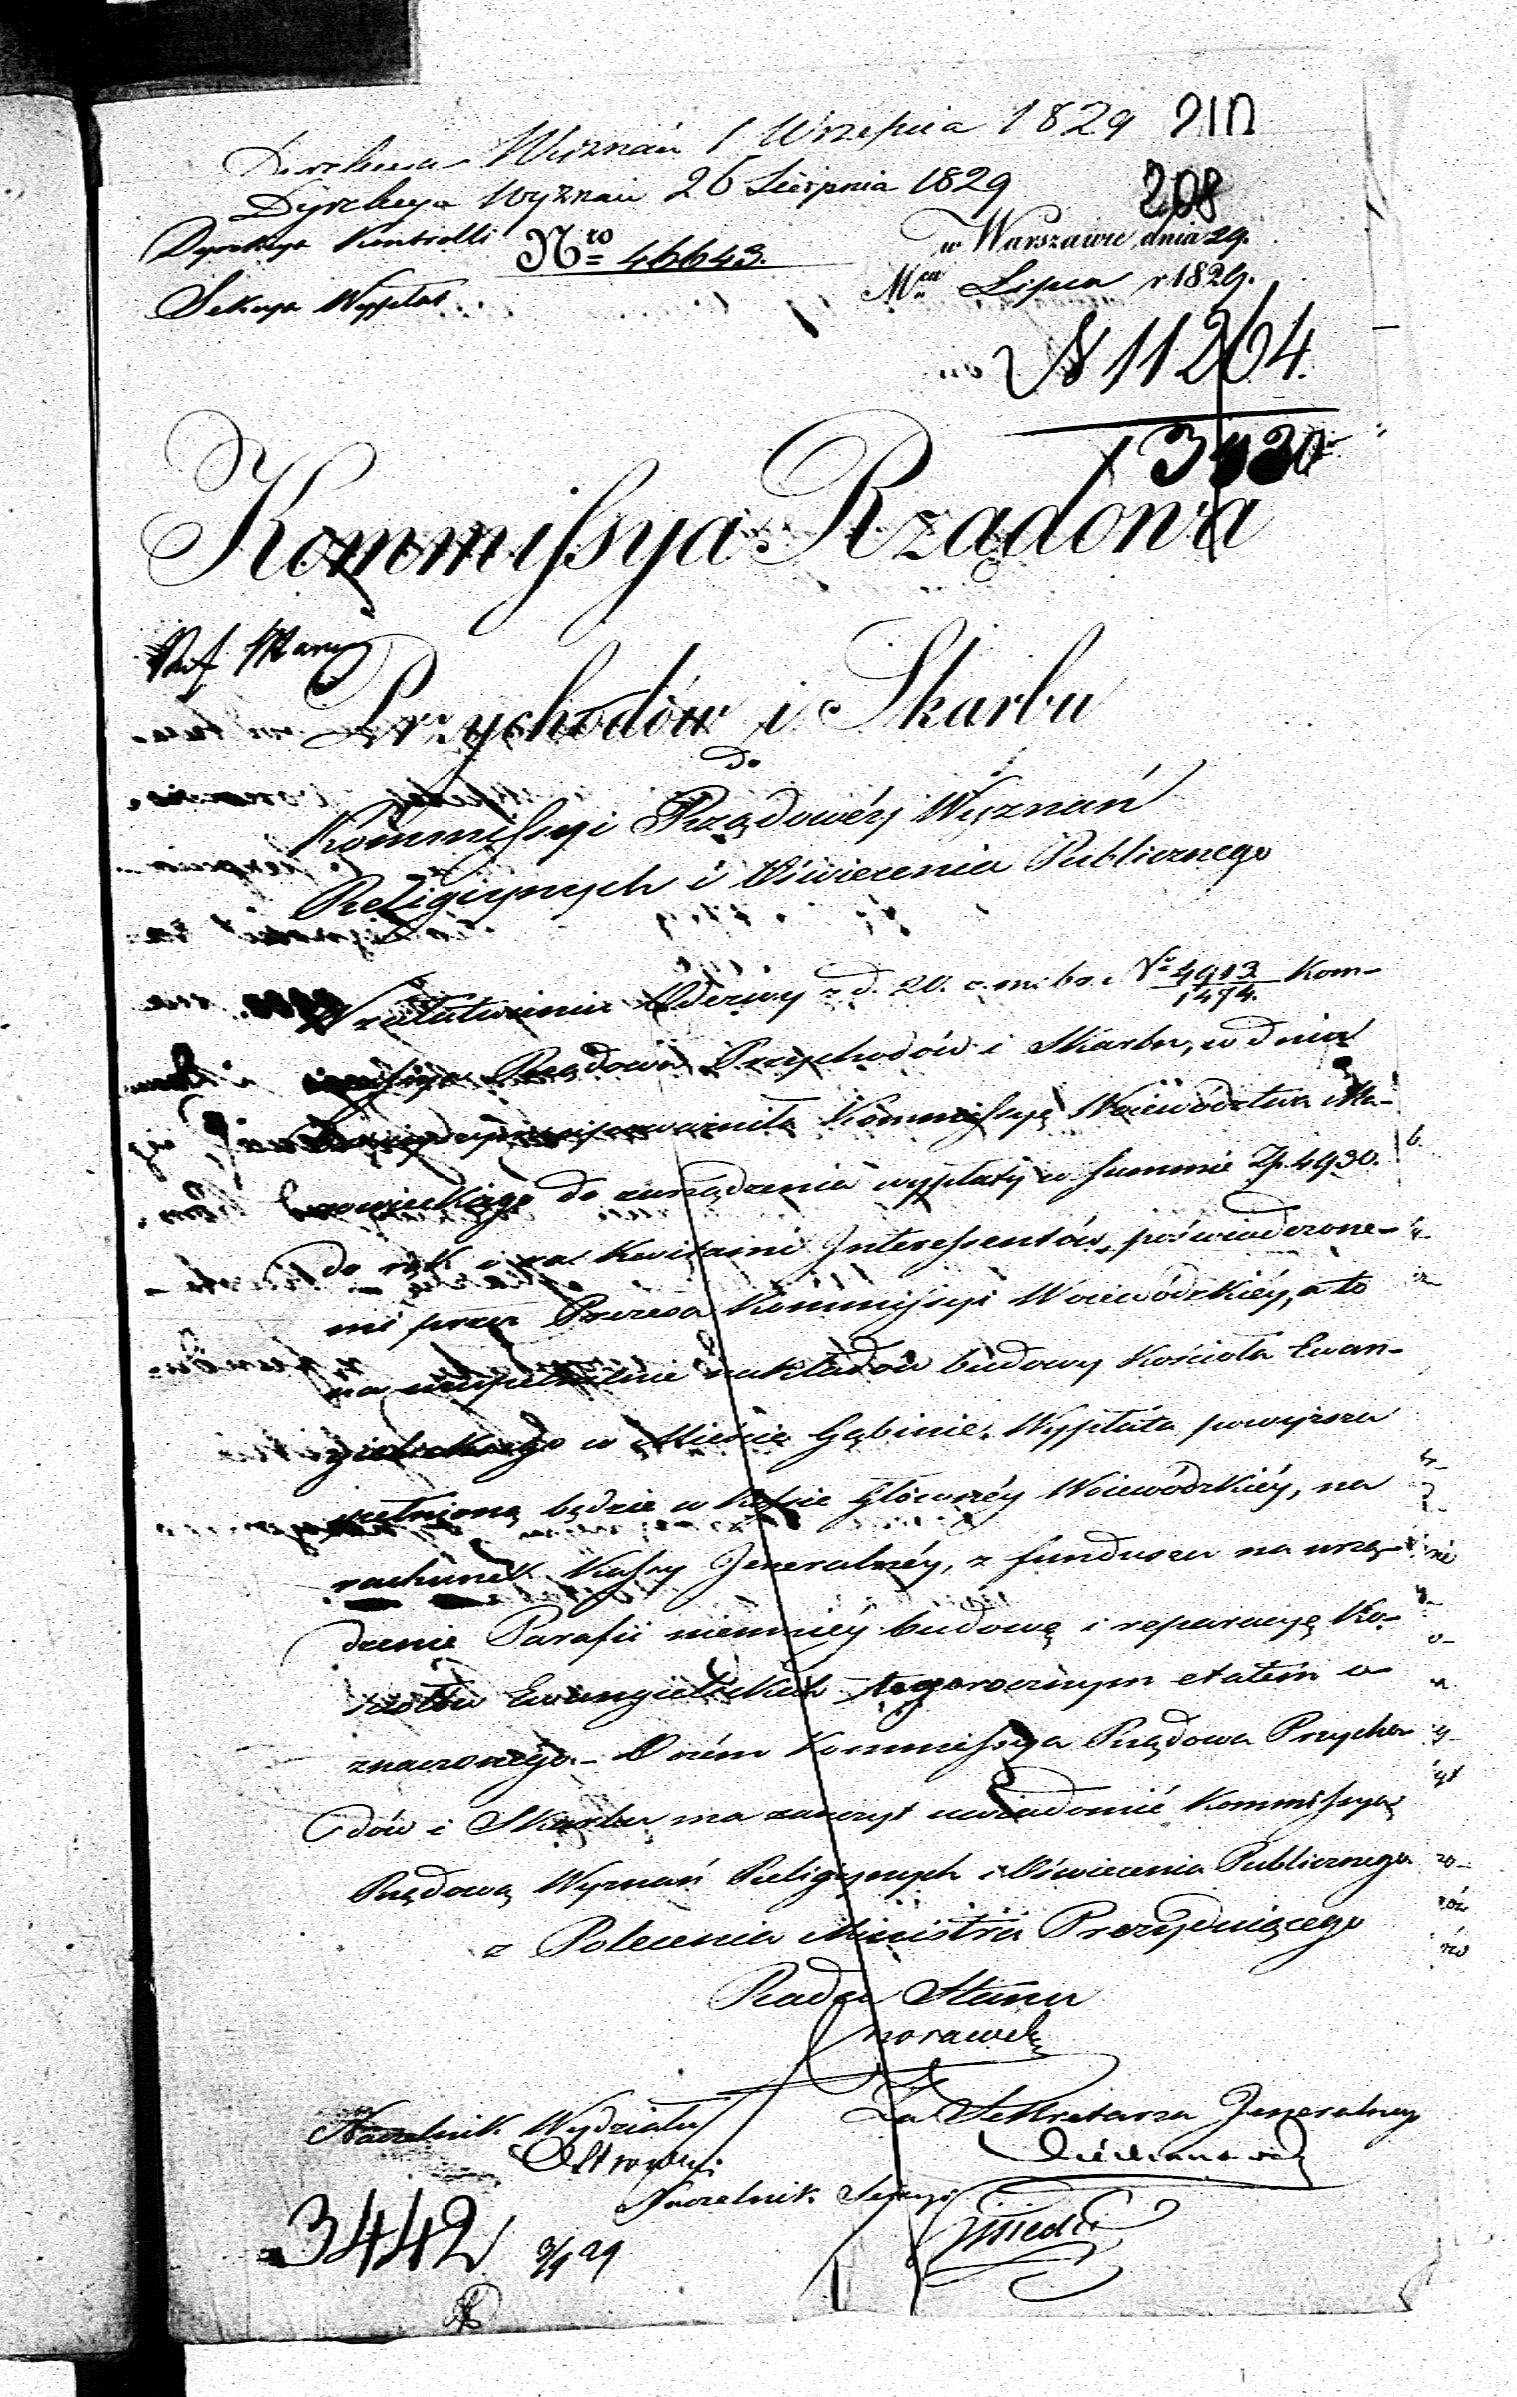 Dyrekcya Wyznań 1 Września 1829
Dyrekcya Wyznań 26 Sierpnia 1829
208
Dyrekcya Kontrolli
Nro 46643.
w Warszawie dnia 29.
Sekcya Wypłat
Mca Lipca r 1829.
N 11264.
Kommissya Rządowa
Przychodów i Skarbu
do
Kommissyi Rządowéy Wyznań
Religiynych i Oświecenia Publicznego
W załatwieniu Odezwy z d. 20. z. m. b. r. No 4913/1474. Kom-
missya Rządowa Przychodów i Skarbu, w dniu
Kommissyę Województwa Ma-
zowieckiego do zarządzenia wypłaty w summie Zp. 4930.
do rąk i za kwitami Interessentów, poświadczone-
mi przez Prezesa Kommissyi Woiewódzkiéy, a to
na nakładów budowy Kościoła Ewan-
gielickiego w Mieście Gąbinie. Wypłata powyższa
pełnioną będzie w Kassie Główney Woiewódzkiéy, na
rachunek Kassy Jeneralnéy, z funduszu na urzą-
dzenie Parafii niemniéy budowę i reparacyę Ko-
ściołów Ewangielickich tegorocznym etatem w-
znaczonego. – O czém Kommissya Rządowa Przycho-
dów i Skarbu ma zaszczyt uwiadomić Kommissyą
Rządową Wyznań Religiynych i Oświecenia Publicznego
z Polecenia Ministra Prezyduiącego
Radca Stanu
Morawski
Za Sekretarza Jeneralnego
Naczelnik Wydziału
Naczelnik Sekcyi
3442